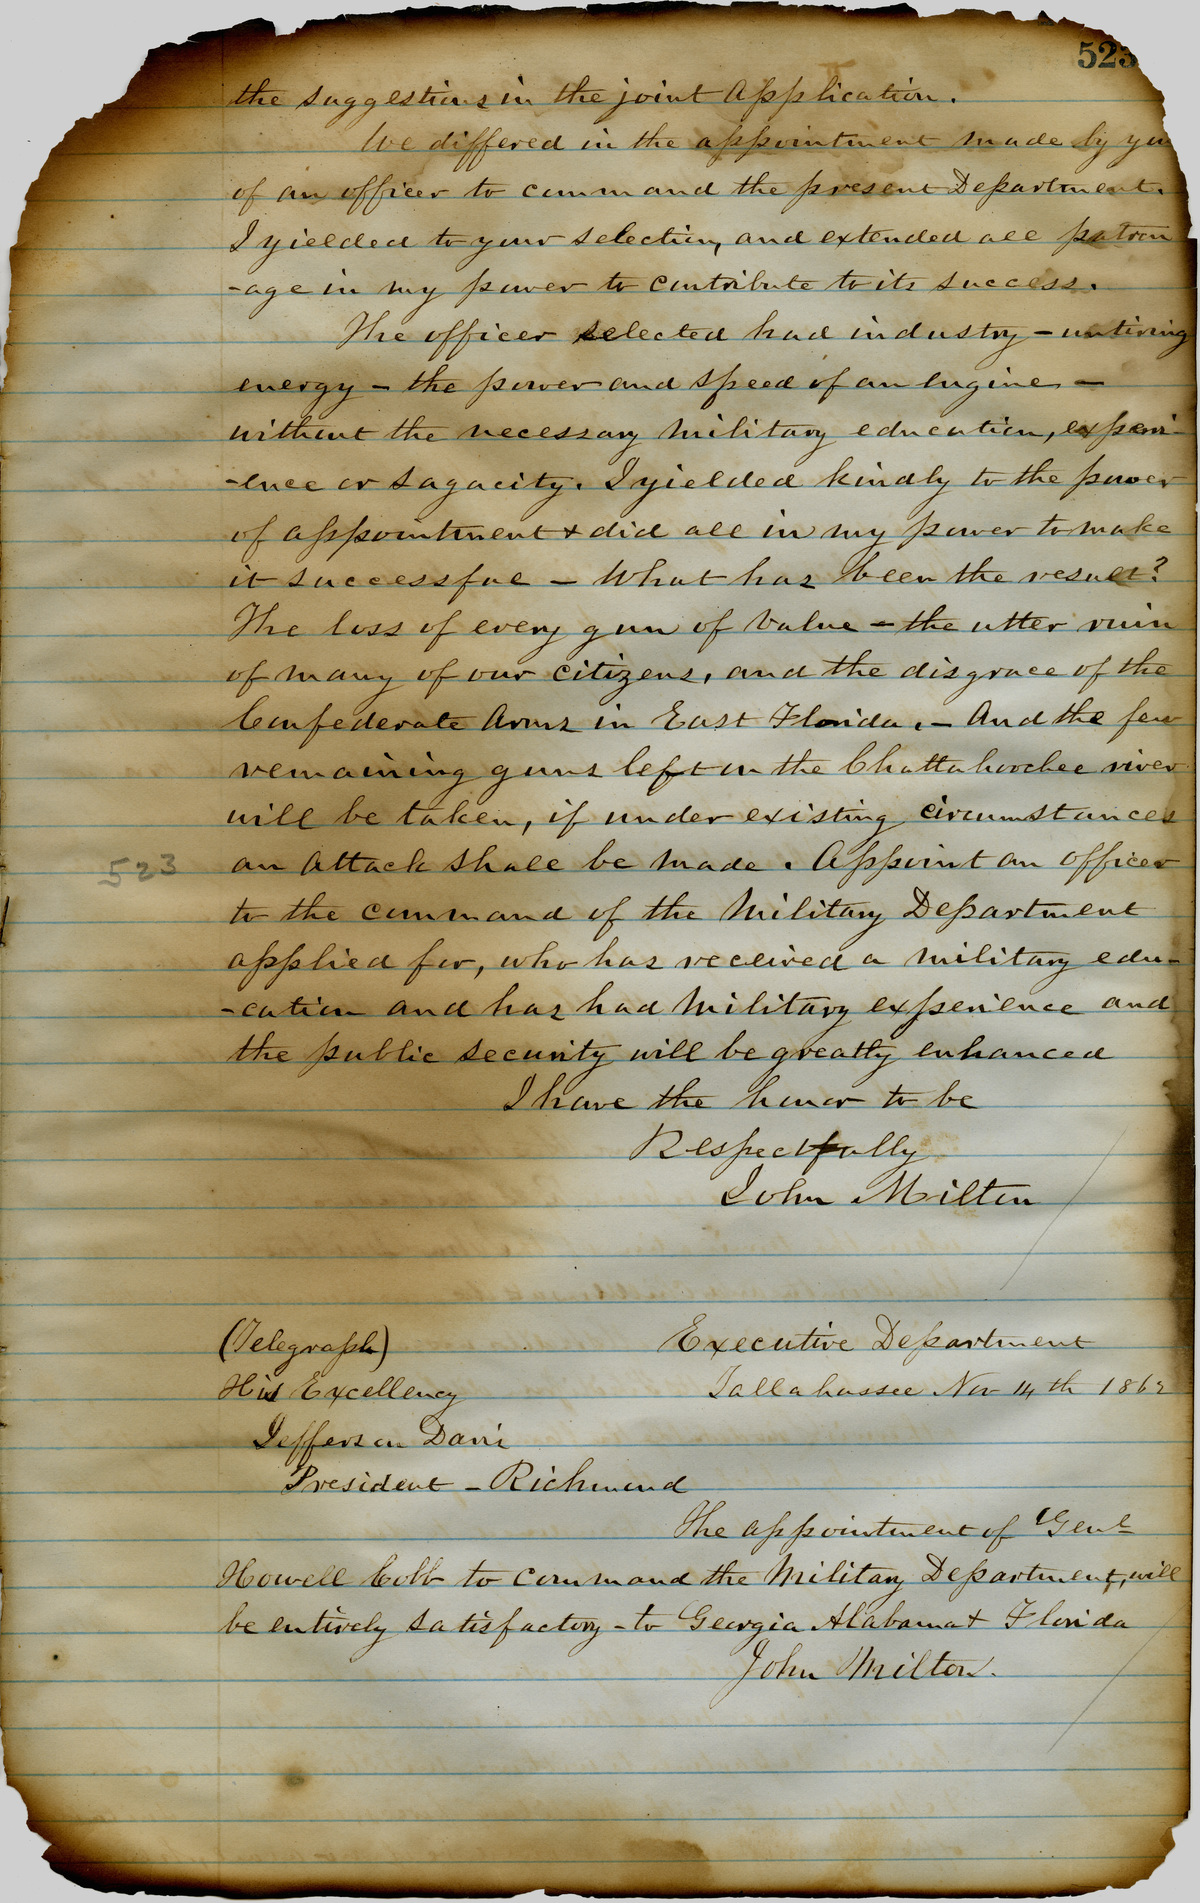 523
the suggestions in the joint Application.
We differed in the appointment made by you
of an officer to command the present Department.
I yielded to your selection, and extended all patron
-age in my power to contribute to its success.
The officer selected had industry - untiring
energy - the power and speed of an engine -
without the necessary military education, experi-
-ence or sagacity. I yielded kindly to the power
of appointment & did all in my power to make
it successful - What has been the result?
The loss of every gun of value - the utter ruin
of many of our citizens, and the disgrace of the
Confederate Arms in East Florida. - And the few
remaining guns left on the Chattahoochee river
will be taken, if under existing circumstances
523
an attack shall be made. Appoint an officer
to the command of the Military Department
applied for, who has received a military edu-
-cation and has had military experience and
the public security will be greatly enhanced
I have the honor to be
Respectfully
John Milton
(Telegraph) Executive Department
His Excellency Tallahassee Nov 14th 1862
Jefferson Davis
President - Richmond
The appointment of Genl
Howell Cobb to command the Military Department, will
be entirely satisfactory - to Georgia Alabama & Florida
John Milton.